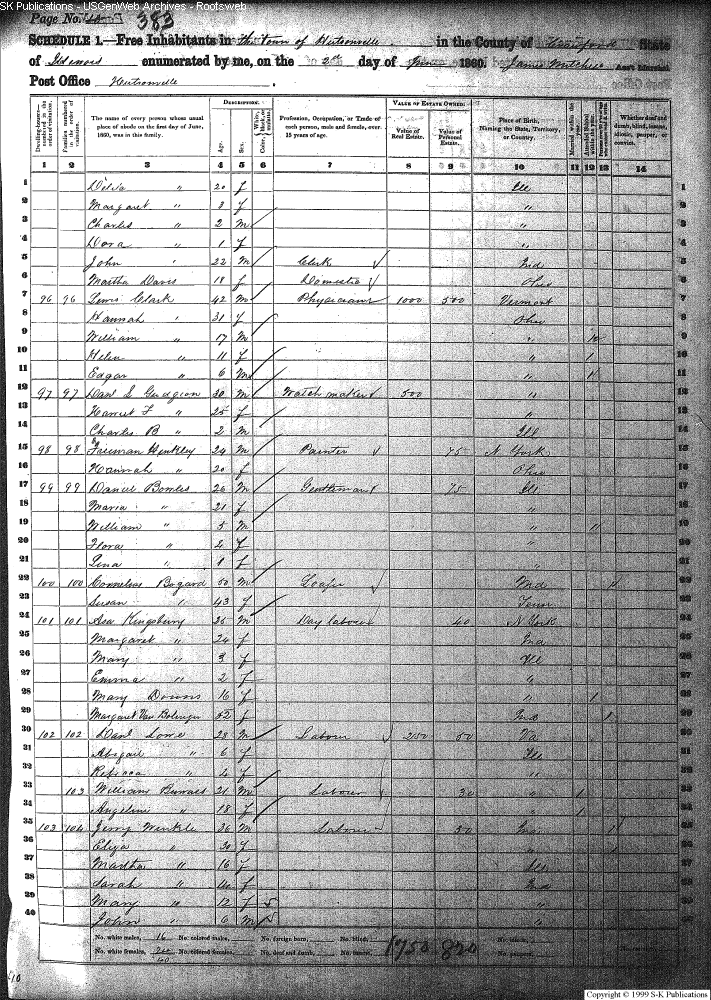 SK Publications - USGenWeb Archives - Rootsweb
Page No. 383
SCHEDULE 1.—Free Inhabitants in the Town of Hutsonville in the County of Crawford State
of Illinois enumerated by me, on the 2nd day of June 1860. James Mitchell Ass't Marshal
Post Office Hutsonville.
Dwelling-houses—numbered in the order of visitation.
Families numbered in the order of visitation.
The name of every person whose usual place of abode on the first day of June, 1860, was in this family.
DESCRIPTION.
Age.
Sex.
Color, White, black, or mulatto.
Profession, Occupation, or Trade of each person, male and female, over 15 years of age.
VALUE OF ESTATE OWNED.
Value of Real Estate.
Value of Personal Estate.
Place of Birth, Naming the State, Territory, or Country.
Married within the year.
Whether deaf and dumb, blind, insane, idiotic, pauper, or convict.
1 2 3 4 5 6 7 8 9 10 11 12 13 14
1 " 20 f Ill 1
2 Margaret " 3 f " 2
3 Charles " 2 m " 3
4 Dora " 1 f " 4
5 John " 22 m Clerk Ind 5
6 Martha Davis 18 f Domestic Ohio 6
7 96 96 Lewis Clark 42 m Physician 1000 500 Vermont 7
8 Hannah " 31 f Ohio 8
9 William " 17 m " 9
10 Helen " 11 f " 1 10
11 Edgar " 6 m " 11
12 97 97 Danl S Gudgion 30 m Watch maker 500 " 12
13 Harriet F " 25 f " 13
14 Charles B " 2 m Ill 14
15 98 98 Freeman Henkley 24 m Painter 75 N York 15
16 Hannah " 20 f Ohio 16
17 99 99 Daniel Bowles 26 m Gentleman 75 Ill 17
18 Maria " 21 f " 18
19 William " 5 m " 19
20 Flora " 4 f " 20
21 Lina " 1 f " 21
22 100 100 Cornelius Bogard 50 m Loafer Md 22
23 Susan " 43 f Tenn 23
24 101 101 Asa Kingsbury 25 m Day laborer 40 N York 24
25 Margaret " 24 f Ina 25
26 Mary " 3 f Ill 26
27 Emma " 2 f " 27
28 Mary Downs 16 f " 1 28
29 Margaret Van Bolinger 52 f Ind 1 29
30 102 102 Danl Lowe 28 m Labour 250 50 Va 30
31 Abigail " 6 f Ill 31
32 Rebecca " 4 f " 32
33 103 William 21 m Labour 30 " 1 33
34 Angeline " 18 f " 1 34
35 103 104 Jerry Winkle 36 m Labour 50 1 35
36 Eliza " 30 f " 1 36
37 Martha " 16 f Ill 37
38 Sarah " 14 f Ind 38
39 Mary " 12 f " 39
40 John " 6 m 40
No. white males, 16 No. colored males, No. foreign born, No. blind, 1750 820 No. idiotic,
No. white females, No. colored females, No. deaf and dumb, No. insane, No. paupers,
Copyright © 1999 S-K Publications